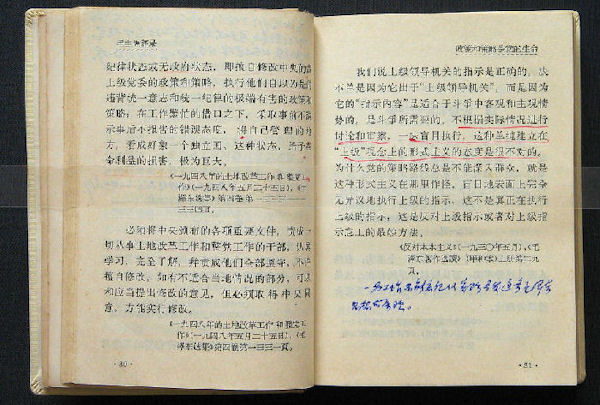 毛主席语录
纪律状态或无政府状态，即擅自修改中央的或
上级党委的政策和策略，执行他们自以为是的
违背统一意志和统一纪律的极端有害的政策和
策略；在工作繁忙的借口之下，采取事前不请
示事后不报告的错误态度，将自己管理的地
方，看成好象一个独立国。这种状态，给予革
命利益的损害，极为巨大。
《一九四八年的土地改革工作和整党工
作》（一九四八年五月二十五日），《毛
泽东选集》第四卷第一三三一——一
三三二页。
必须将中央颁布的各项重要文件，责成一
切从事土地改革工作和整党工作的干部，认真
学习，完全了解，并责成他们全部遵守，不许
擅自修改。如有不适合当地情况的部分，可以
和应当提出修改的意见，但必须取得中央同
意，方能实行修改。
《一九四八年的土地改革工作和整党工
作》（一九四八年五月二十五日），《毛
泽东选集》第四卷第一三三一页。
·80·
政策和策略是党的生命
我们说上级领导机关的指示是正确的，决
不单是因为它出于“上级领导机关”，而是因为
它的“指示内容”是适合于斗争中客观和主观情
势的，是斗争所需要的。不根据实际情况进行
讨论和审察，一味盲目执行，这种单纯建立在
“上级”观念上的形式主义的态度是很不对的。
为什么党的策略路线总是不能深入群众，就是
这种形式主义在那里作怪。盲目地表面上完全
无异议地执行上级的指示，这不是真正在执行
上级的指示，这是反对上级指示或者对上级指
示怠工的最妙方法。
《反对本本主义》（一九三〇年五月），《毛
泽东著作选读》（甲种本）上册第二九
页。
·81·